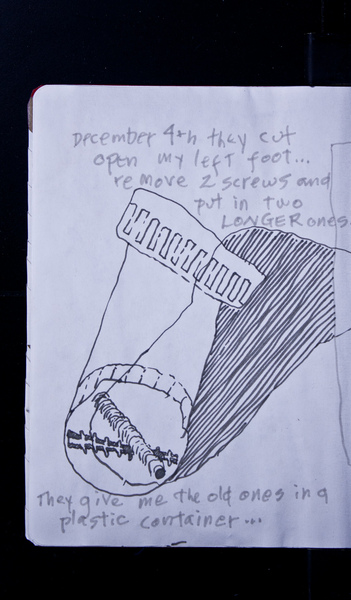 December 4th they cut
open my left foot...
remove 2 screws and
put in two
LONGER ones
They give me the old ones in a
plastic container...